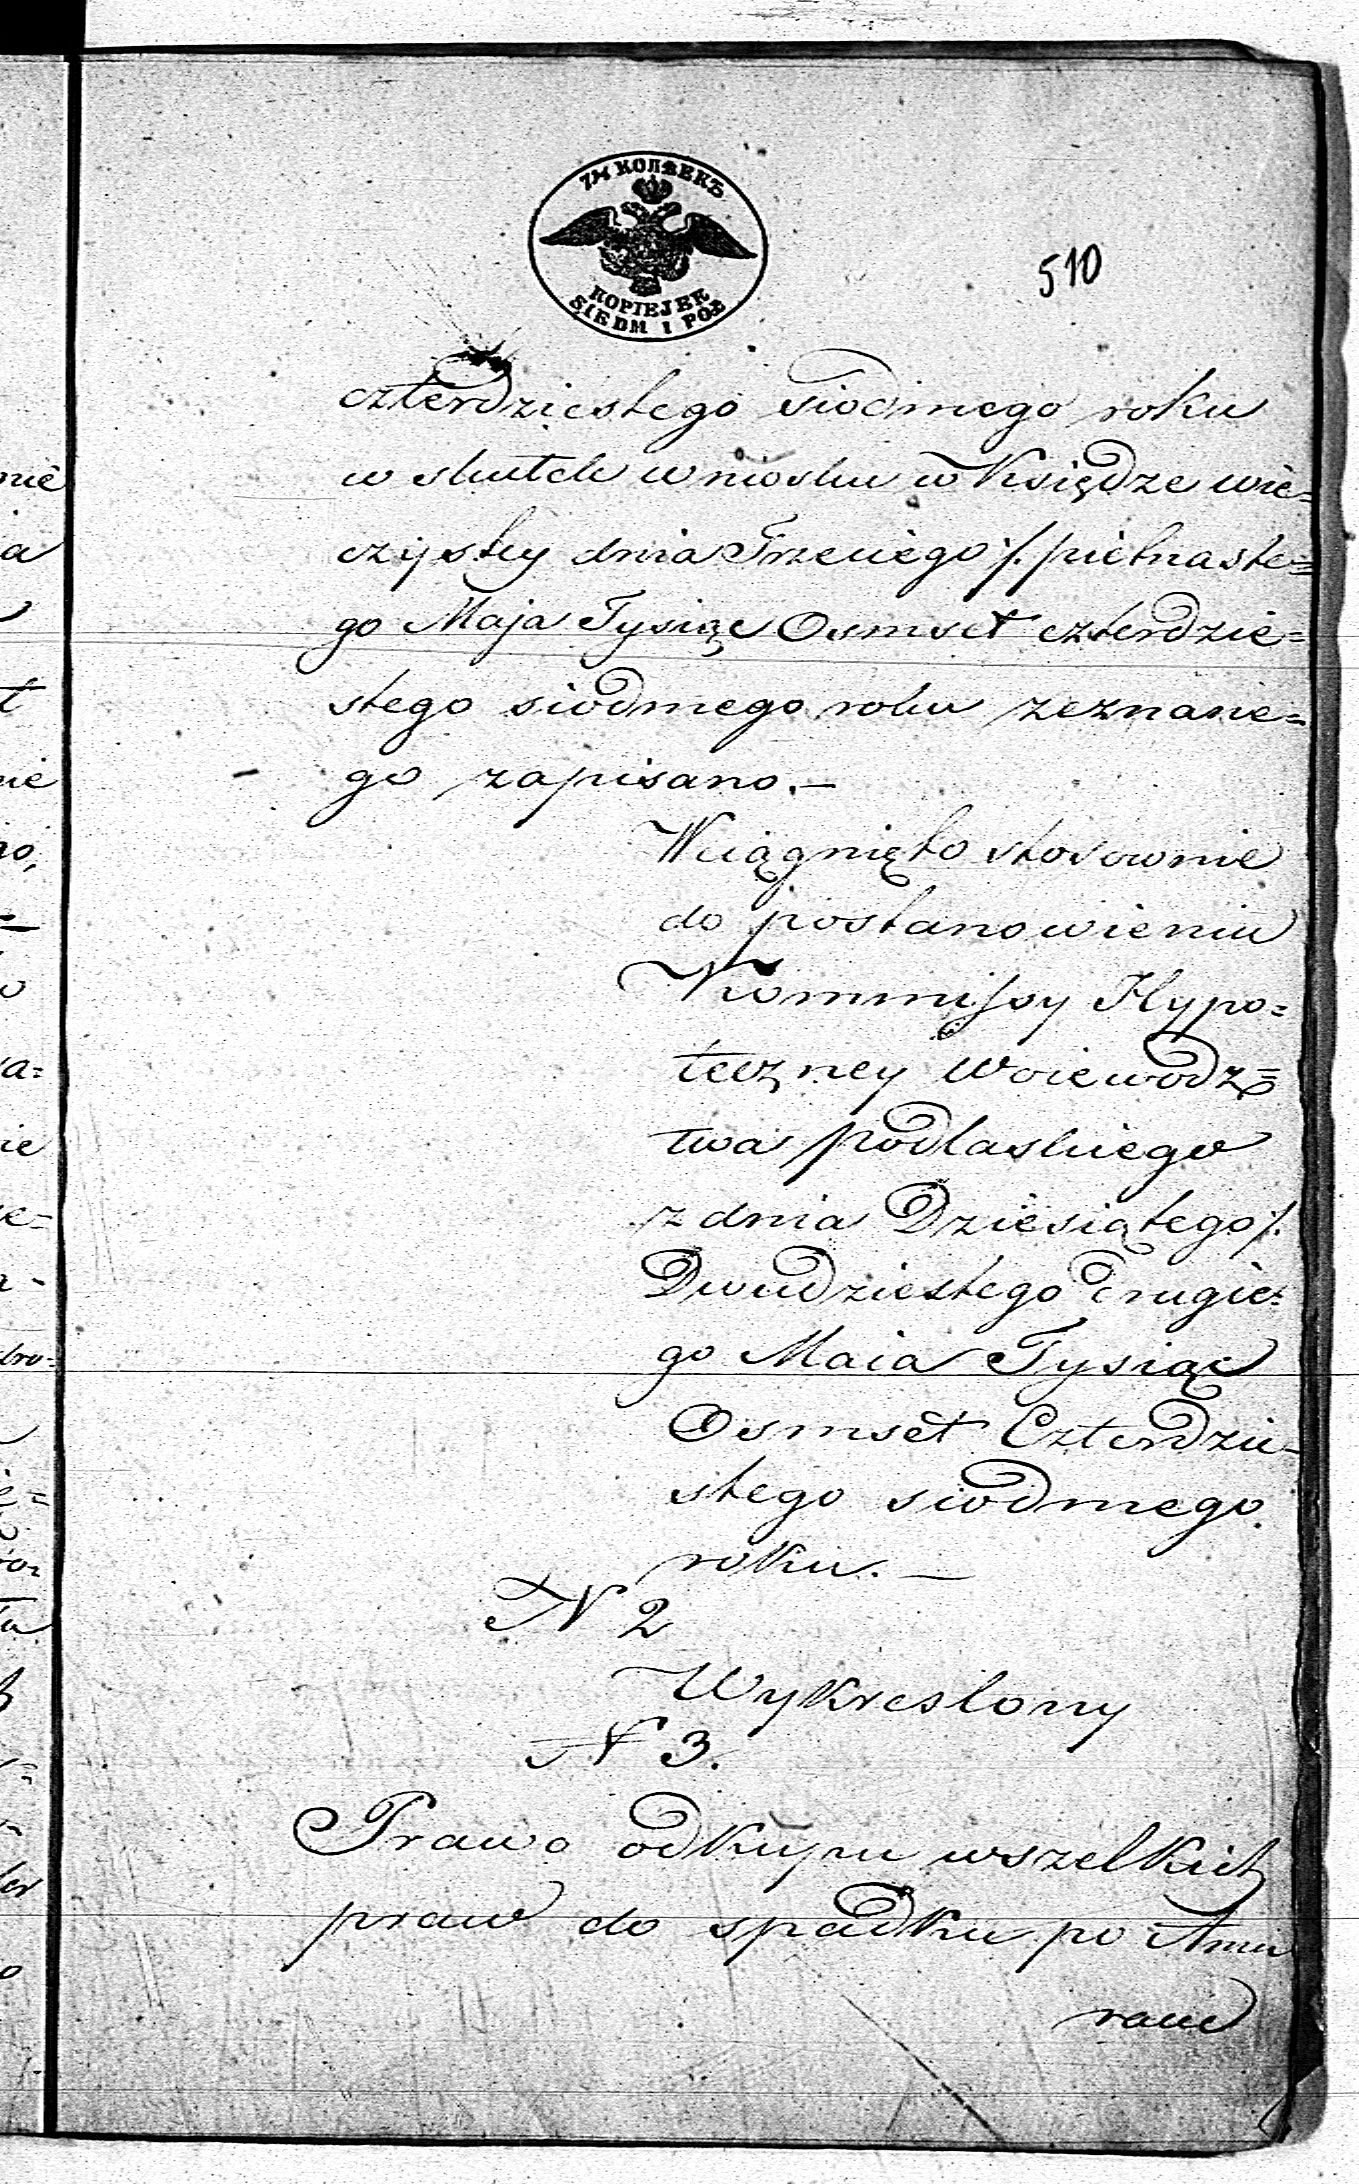 7½ КОПѢЕКЪ
KOPIEJEK
SIEDM I POŁ
510
czterdziestego siodmego roku
w skutek wniosku w Księdze wie=
czystey dnia Trzeciego /. pietnaste=
go Maja Tysiąc Osmset czterdzie=
stego siodmego roku zeznane=
go zapisano.—
Wciągnięto stosownie
do postanowieniu
Kommissyi Hypo=
teczney Woiewodz=
twa podlaskiego
z dnia Dziesiątego /.
Dwudziestego drugie=
go Maia Tysiąc
Osmset Czterdzie-
stego siodmego
roku.—
N 2
Wykreslony
N 3.
Prawo odkupu wszelkich
praw do spadku po